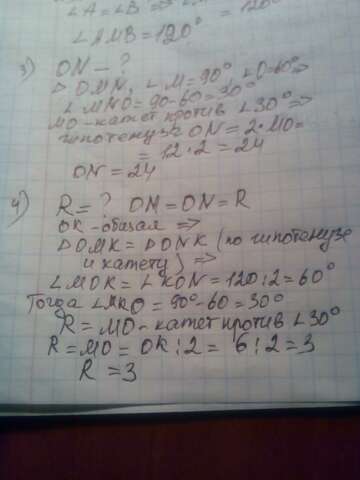 ∠A = ∠B ⇒
∠AMB = 120°
3) ON - ?
△OMN, ∠M = 90° ∠O = 60° ⇒
∠MNO = 90 - 60 = 30°
MO - катет против ∠30° ⇒
гипотенуза ON = 2·MO =
= 12·2 = 24
ON = 24
4) R = ? OM = ON = R
OK - общая ⇒
△OMK = △ONK (по гипотенузе
и катету) ⇒
∠MOK = ∠KON = 120:2 = 60°
Тогда ∠MKO = 90° - 60 = 30°
R = MO - катет против ∠30°
R = MO = OK:2 = 6:2 = 3
R = 3